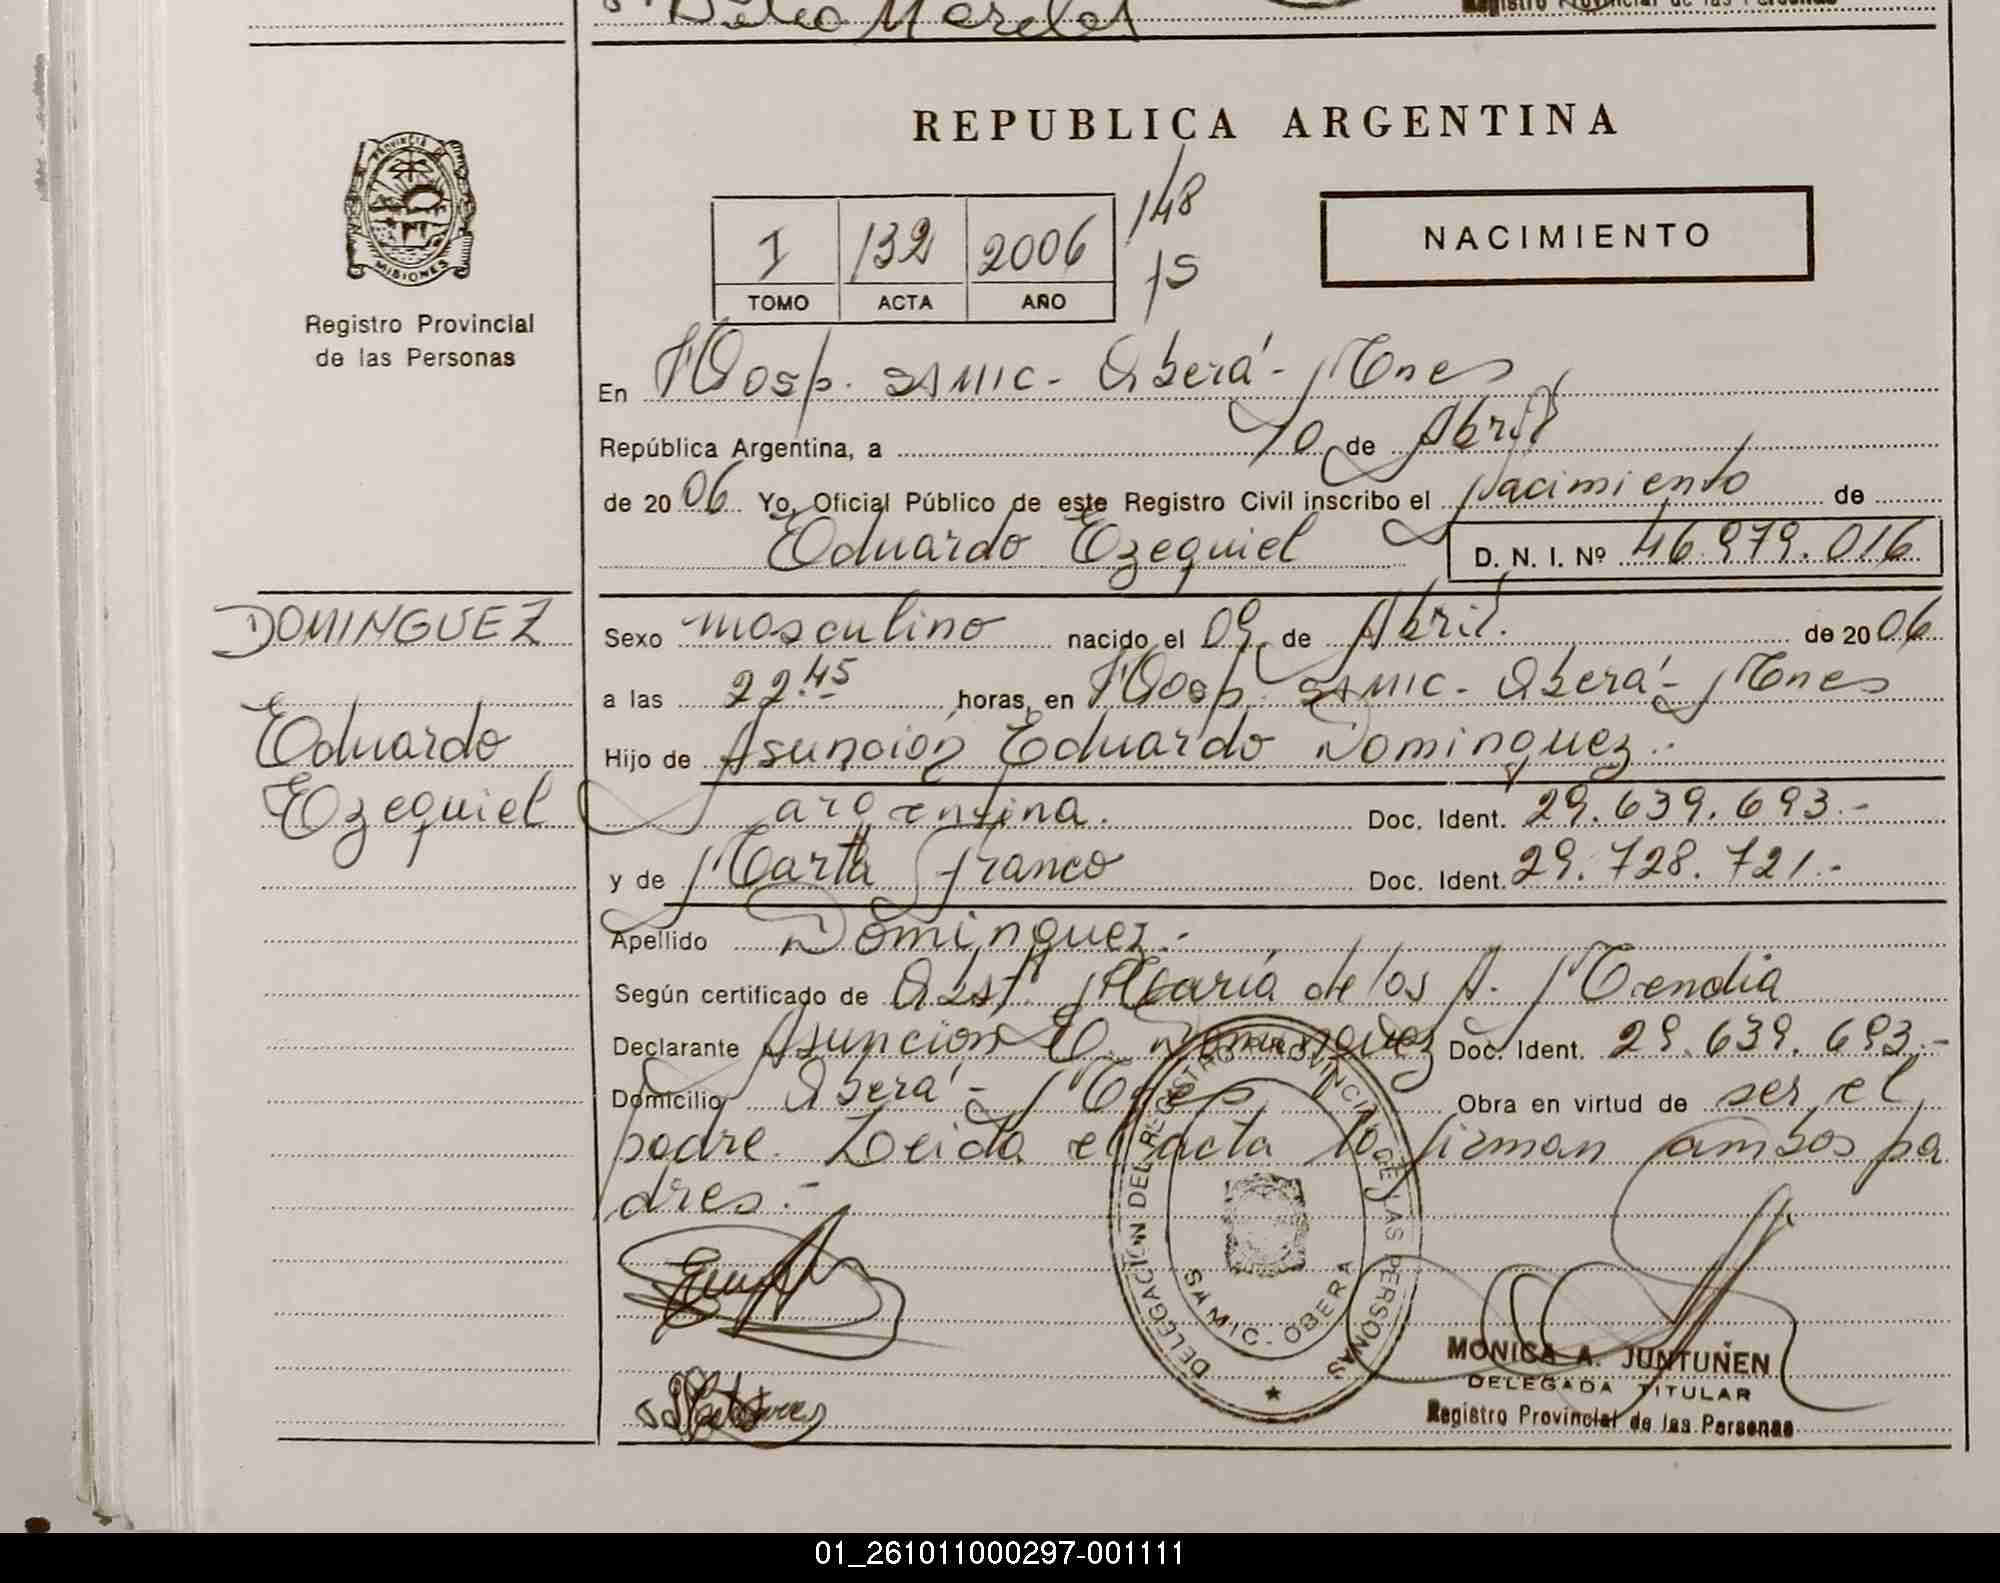 Registro Provincial de las Personas
REPUBLICA ARGENTINA
PROVINCIA DE
MISIONES
Registro Provincial
de las Personas
I 132 2006
TOMO ACTA AÑO
148
15
NACIMIENTO
En Hosp. SAMIC - Oberá - Mnes
República Argentina, a 10 de Abril
de 2006 Yo, Oficial Público de este Registro Civil inscribo el nacimiento de
Eduardo Ezequiel D. N. I. Nº 46.979.016
DOMINGUEZ
Eduardo
Ezequiel
Sexo masculino nacido el 09 de Abril. de 2006
a las 22.45 horas, en Hosp. SAMIC - Oberá - Mnes
Hijo de Asunción Eduardo Dominguez.-
argentina. Doc. Ident. 29.639.693.-
y de Marta Franco Doc. Ident. 29.728.721.-
Apellido Dominguez.-
Según certificado de Obst. María de los A. Mendia
Declarante Asunción E. Dominguez Doc. Ident. 29.639.693.-
Domicilio Oberá - Mnes Obra en virtud de ser el
padre. Leida el acta la firman ambos pa
dres.-
DELEGACIÓN DEL REGISTRO PROVINCIAL DE LAS PERSONAS
SAMIC - OBERA
MONICA A. JUNTUÑEN
DELEGADA TITULAR
Registro Provincial de las Personas
01_261011000297-001111